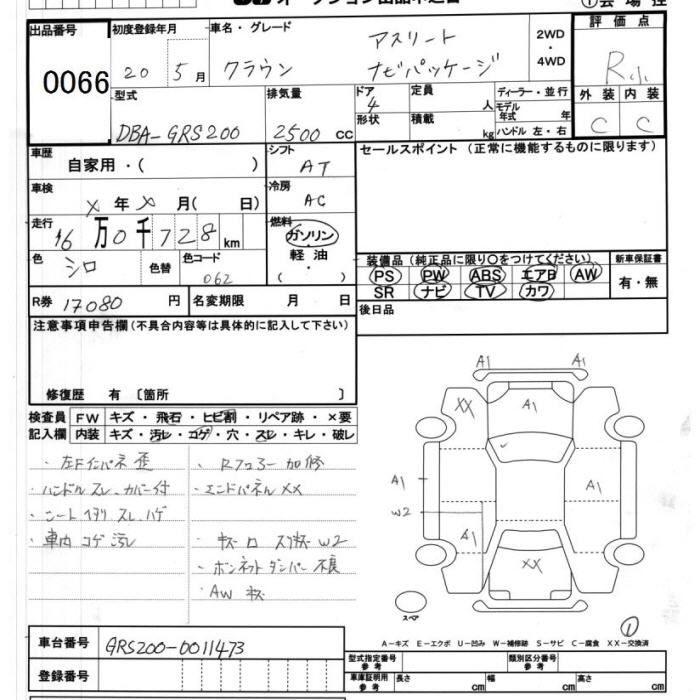 オークション出品申込書
① 会場控
出品番号 初度登録年月 車名・グレード 2WD・4WD 評価点
0066 20 5月 クラウン アスリート ナビパッケージ R小
型式 排気量 ドア形状 定員 人 ディーラー・並行 外装 内装
DBA-GRS200 2500 CC 4 積載 kg モデル年式 年 ハンドル 左・右 C C
車歴 シフト セールスポイント (正常に機能するものに限ります)
自家用・( ) AT
車検 冷房
X 年 X 月( 日) AC
走行 燃料
16 万 0 千 7 2 8 km ガソリン
色 色替 色コード 軽油
シロ 062 ( ・ )
装備品 (純正品に限り○をつけてください) 新車保証書
PS PW ABS エアB AW 有・無
SR ナビ TV カワ
R券 17080 円 名変期限 月 日 後日品
注意事項申告欄 (不具合内容等は具体的に記入して下さい)
修復歴 有 〔箇所 〕
検査員 FW キズ・飛石・ヒビ割・リペア跡・×要
記入欄 内装 キズ・汚レ・コゲ・穴・スレ・キレ・破レ
・左Fインパネ歪 ・Rフロアー加修
・ハンドル スレ、カバー付 ・エンドパネル XX
・シート ヘタリ スレ、ハゲ
・車内 コゲ 汚レ ・キズ ロ スリキズ W2
・ボンネットダンパー不良
・AW キズ
A1 A1
XX A1
A1 A1
W2
A1
XX
スペア
①
A-キズ E-エクボ U-凹み W-補修跡 S-サビ C-腐食 XX-交換済
車台番号 GRS200-0011473
型式指定番号 参考 類別区分番号 参考
登録番号 車庫証明用 参考 長さ cm 幅 cm 高さ cm